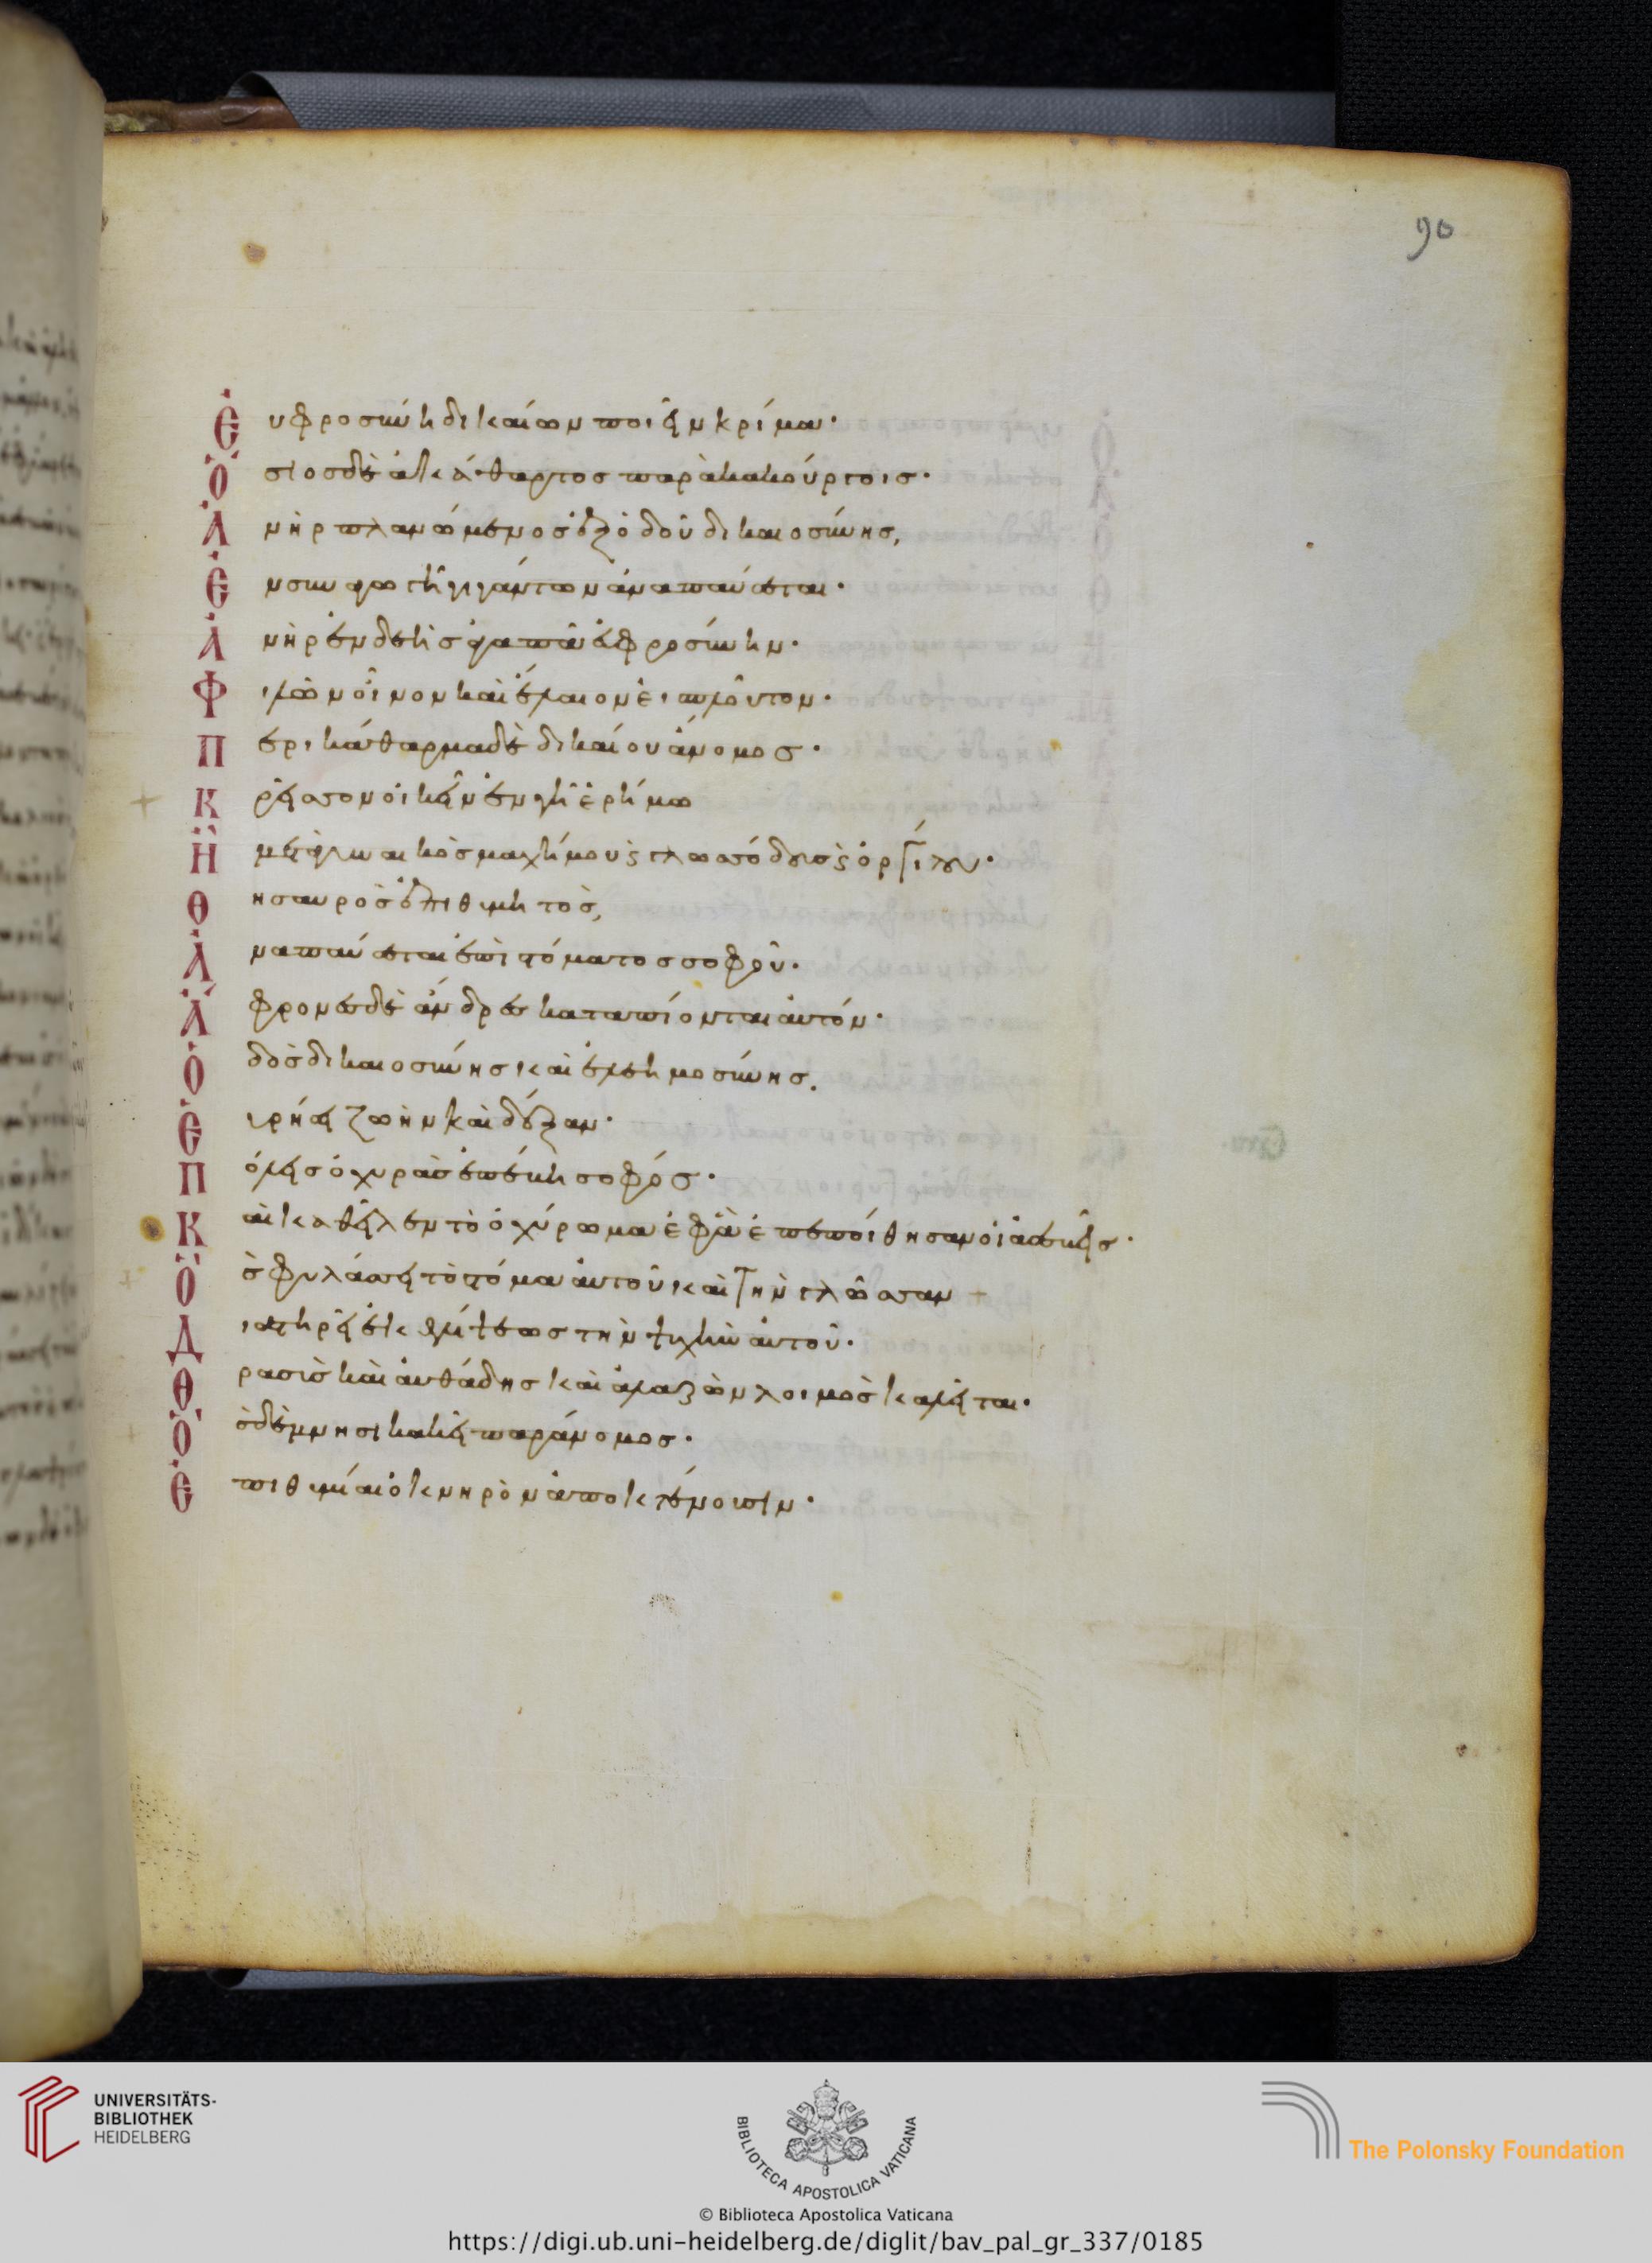 90
Ἐυφροσύνη δικαίων ποιεῖν κρίμα·
Ὅσιος δὲ ἀκάθαρτος παρὰ κακούργοις·
Ἀνὴρ πλανώμενος ἐξ ὁδοῦ δικαιοσύνης,
Ἐν συναγωγῆ γιγάντων ἀναπαύσεται·
Ἀνὴρ ἐνδεὴς ἀγαπᾶ εὐφροσύνην·
Φιλῶν οἶνον καὶ ἔλαιον εἰς πλοῦτον·
Περικάθαρμα δὲ δικαίου ἄνομος·
Κρεῖσσον οἰκεῖν ἐν γῆ ἐρήμω
Ἢ μετὰ γυναικὸς μαχίμου καὶ γλωσσώδους καὶ ὀργίλου·
Θησαυρὸς ἐπιθυμητὸς,
Ἀναπαύσεται ἐπὶ στόματος σοφοῦ·
Ἄφρονες δὲ ἄνδρες καταπίονται αὐτόν·
Ὁδὸς δικαιοσύνης καὶ ἐλεημοσύνης.
Εὑρήσει ζωὴν καὶ δόξαν·
Πόλεις ὀχυρὰς ἐπέβη σοφός·
Καὶ καθεῖλεν τὸ ὀχύρωμα ἐφ' ὧ ἐπεποίθησαν οἱ ἀσεβεῖς·
Ὃς φυλάσσει τὸ στόμα αὐτοῦ καὶ τὴν γλῶσσαν
Διατηρεῖ ἐκ θλίψεως τὴν ψυχὴν αὐτοῦ·
Θρασὺς καὶ αὐθάδης καὶ ἀλαζὼν λοιμὸς καλεῖται·
Ὃς δὲ μνησικακεῖ παράνομος·
Ἐπιθυμίαι ὀκνηρὸν ἀποκτένουσιν·
UNIVERSITÄTS-
BIBLIOTHEK
HEIDELBERG
BIBLIOTECA APOSTOLICA VATICANA
The Polonsky Foundation
© Biblioteca Apostolica Vaticana
https://digi.ub.uni-heidelberg.de/diglit/bav_pal_gr_337/0185